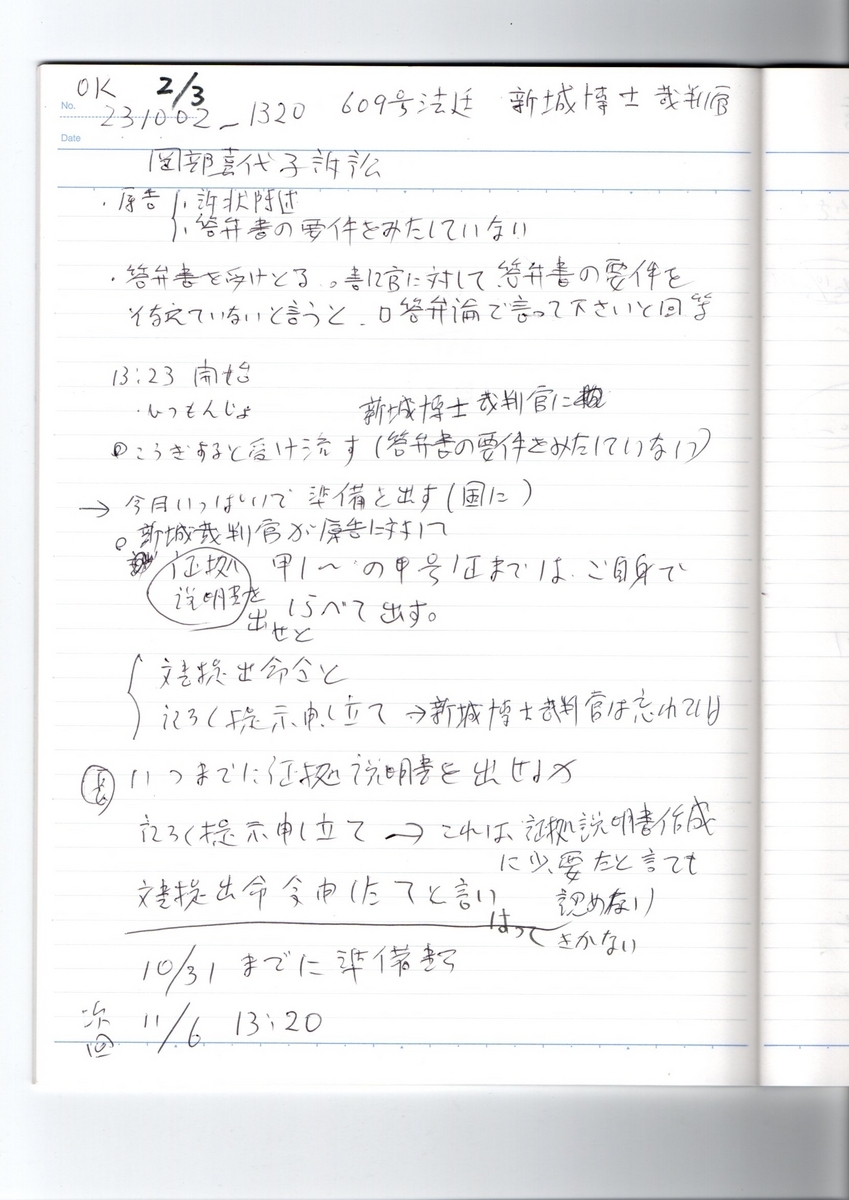 OK 2/3
No.
231002_1320 609号法廷 新城博士裁判官
Date
岡部喜代子訴訟
・原告 ・訴状陳述
・答弁書の要件をみたしていない
・答弁書を受けとる。書記官に対して答弁書の要件を
そなえていないと言うと、口答弁論で言って下さいと回答
13:23 開始
新城博士裁判官に
こうぎすると受け流す(答弁書の要件をみたしていない)
→ 今月いっぱいで準備を出す(国に)
新城裁判官が原告に対して
証拠 甲1〜の甲号証までは、ご自身で
説明書を しらべて出す。
出せと
文書提出命令と
記ろく提示申し立て →新城博士裁判官は忘れている
いつまでに証拠説明書を出せるか
記ろく提示申し立て → これは、証拠説明書作成
に必要だと言っても
文書提出命令申し立てと言い 認めない
はって きかない
10/31 までに準備書
次回 11/6 13:20